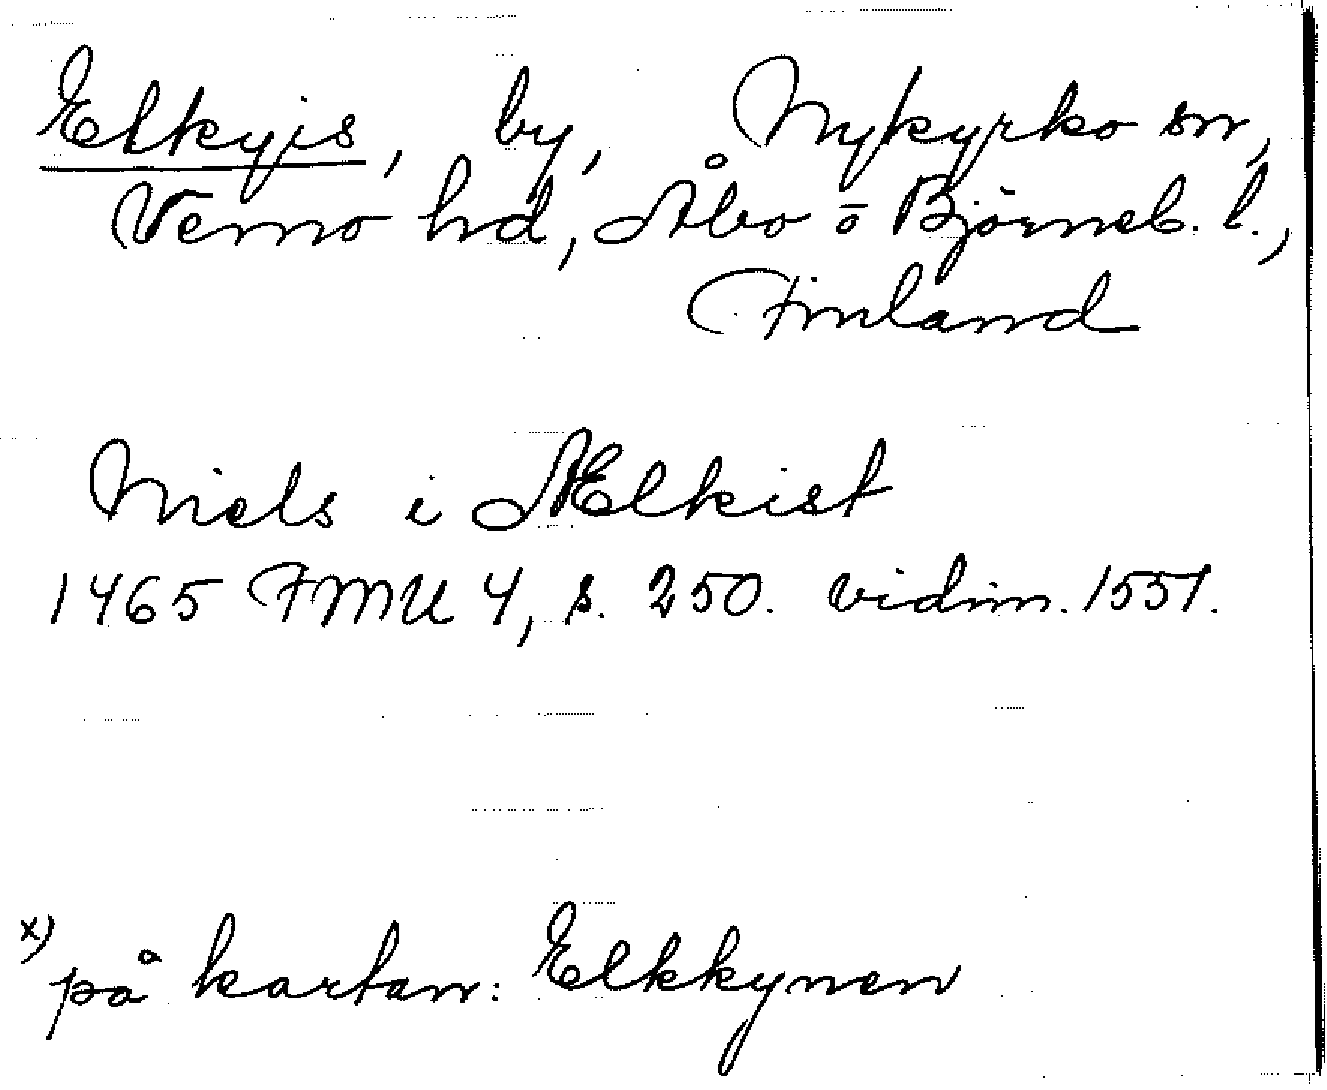 Elkyis, by, Nykyrko sn,
Vemo hd, Åbo o Björneb. l.,
Finland
Niels i Ælkist
1465 FMU 4, s. 250. vidim. 1551.
x) på kartan: Elkkynen